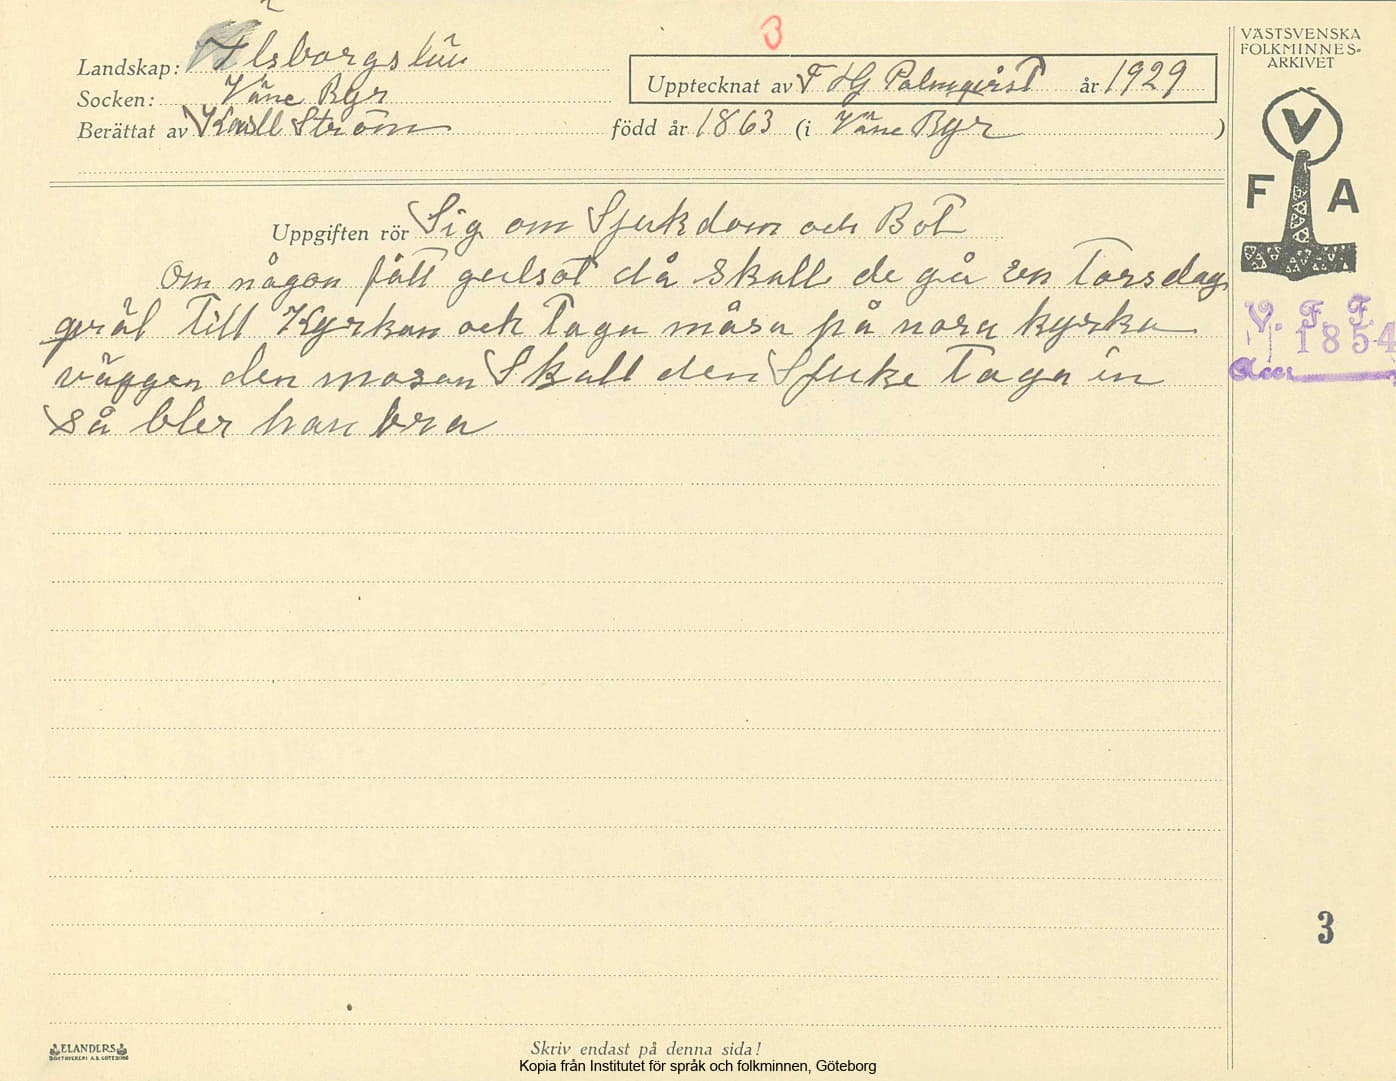 3
VÄSTSVENSKA
FOLKMINNES-
ARKIVET
Landskap: Älsborgslän
Socken: Väne Ryr
Berättat av Karll Ström
Upptecknat av F HG Palmqvist år 1929
född år 1863 (i Väne Ryr )
V
F A
Uppgiften rör Sig om Sjukdom och Bot
Om någon fått gulsot då skall de gå en Torsdags
qväl Till Kyrkan och Taga måsa på nora kyrka
väggen den mosan Skall den Sjuke Taga in
så bler han bra
V. F. F.
1854
Acc.
3
ELANDERS
BOKTRYCKERI A.B. GÖTEBORG
Skriv endast på denna sida!
Kopia från Institutet för språk och folkminnen, Göteborg